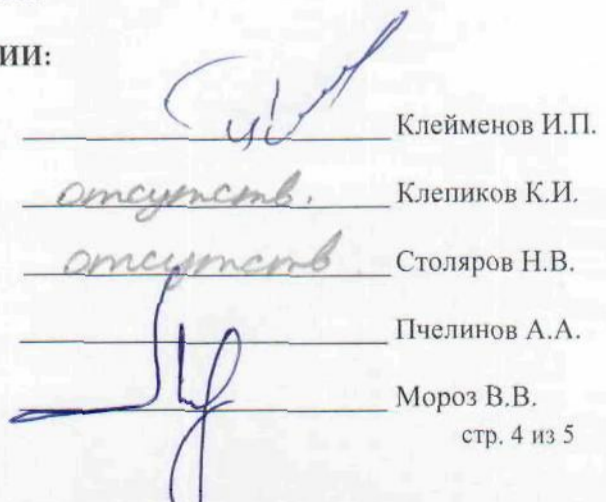 ИИ:
Клейменов И.П.
отсутств. Клепиков К.И.
отсутств Столяров Н.В.
Пчелинов А.А.
Мороз В.В.
стр. 4 из 5